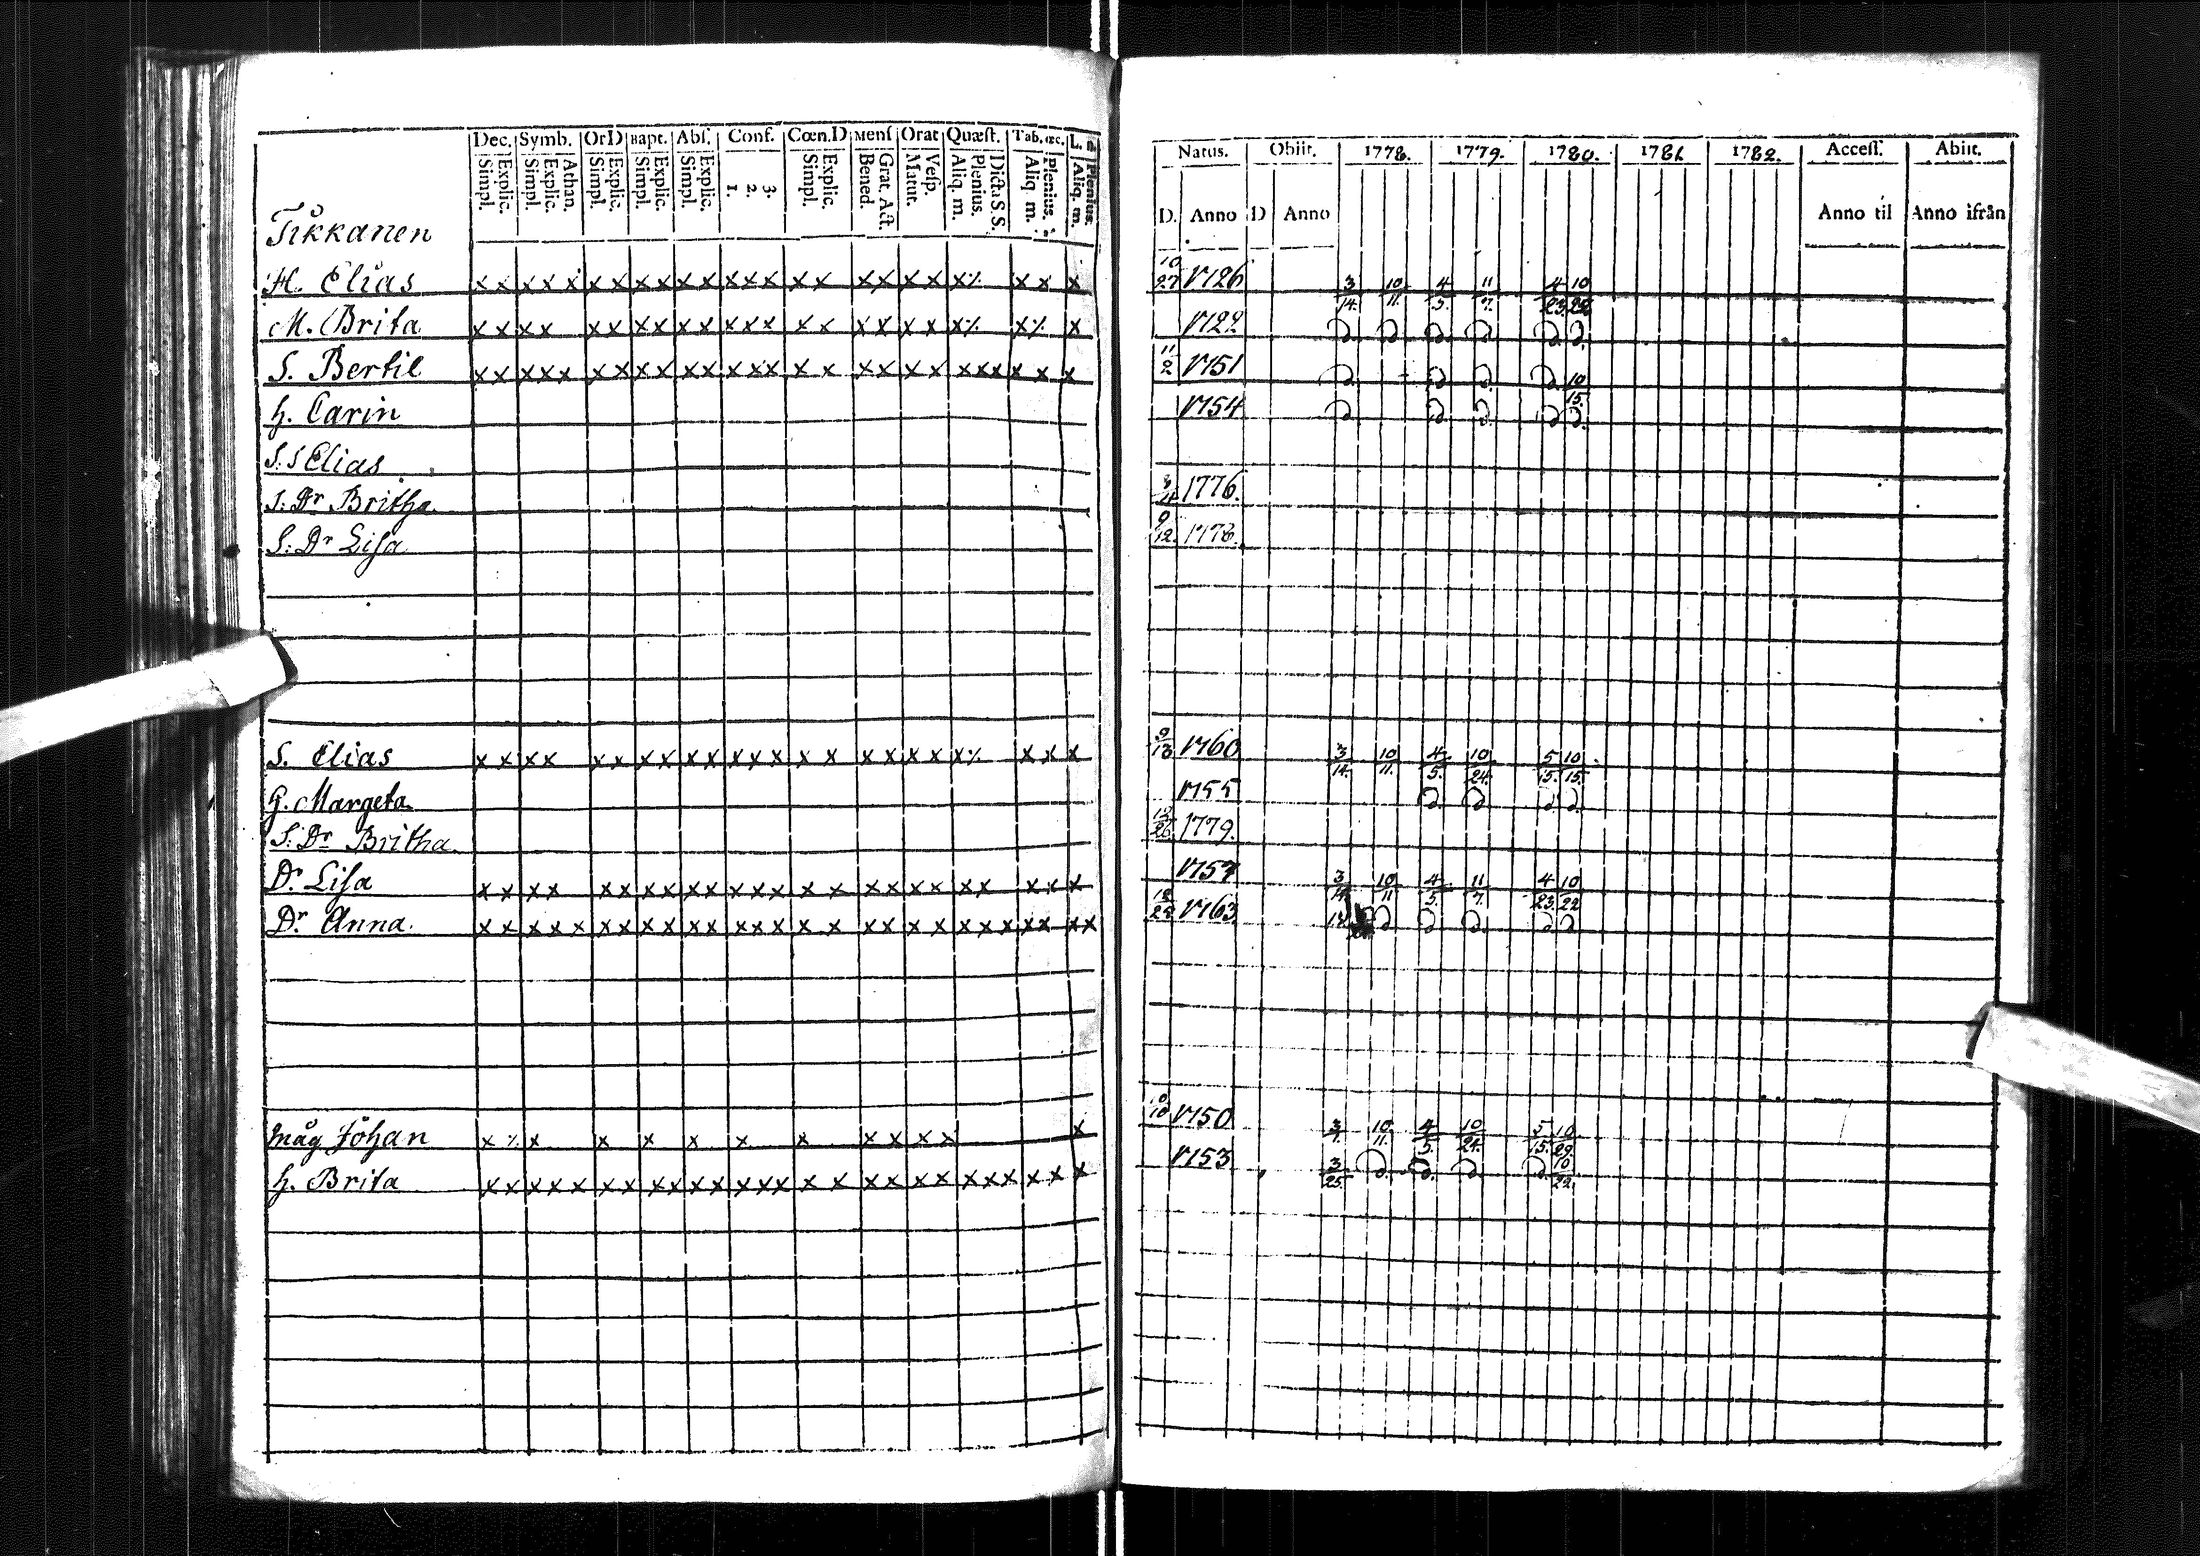 Dec. Symb. Or D Bapt. Abſ. Conf. Cœn.D Menſ Orat Quæſt. Tab. œc. L. n.
Simpl. Explic. Simpl. Explic. Athan. Simpl. Explic. Simpl. Explic. Simpl. Explic. 1. 2. 3. Simpl. Explic. Bened. Grat. Act. Matut. Veſp. Aliq. m. Plenius. Dict. S.S. Aliq. m. Plenius. Aliq. m. Plenius.
Tikkanen
H. Elias x x x x x x x x x x x x x x x x x x x x x x x
M. Brita x x x x x x x x x x x x x x x x x x x x x
S. Bertil x x x x x x x x x x x x x x x x x x x x x x x x x
h. Carin
S. S Elias
S: Dr Britha
S: Dr Liſa
S. Elias x x x x x x x x x x x x x x x x x x x x x x
G. Margeta
S: Dr Britha
Dr Liſa x x x x x x x x x x x x x x x x x x x x x x x
Dr Anna x x x x x x x x x x x x x x x x x x x x x x x x x x
Måg Johan x x x x x x x x x x x x
h. Brita x x x x x x x x x x x x x x x x x x x x x x x x x
Natus. Obiit. 1778. 1779. 1780. 1781 1782. Acceſſ. Abiit.
D. Anno D Anno Anno til Anno ifrån
10/27 1726 3/14. 10/11. 4/5. 11/7. 4/23. 10/22
1722
11/2 1751 10/15.
1754
3/21 1776.
9/12. 1778.
9/13 1760 3/14. 10/11. 4/5. 10/24. 5/15. 10/15.
1755
12/26 1779.
1757 3/14 10/11 4/5. 11/7. 4/23. 10/22
12/22 1763
10/10 1750 3/1. 10/11. 4/5. 10/24. 5/15. 10/29.
1753 3/25. 10/22.